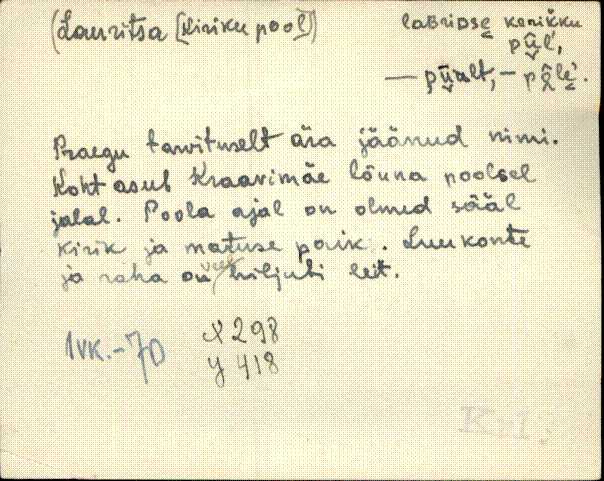 (Lauritsa [Kiriku pool])
labridse kerikku
pûl',
— pūalt, — pêle'.
Praegu tarvituselt ära jäänud nimi.
Koht asub Kraavimäe lõuna poolsel
jalal. Poola ajal on olnud sääl
kirik ja matuse paik. Luukonte
ja raha on veel hiljuti leit.
1vk.-70
X 298
y 418
Krl.